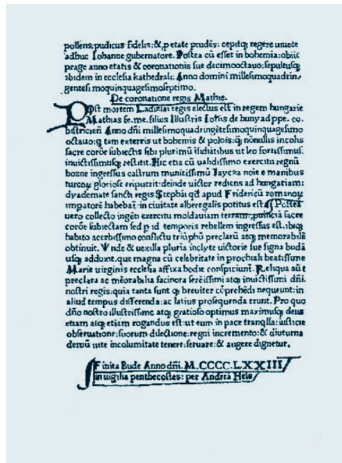 pollens, pudicus fidelis: &, p etate prudẽs: cepitq; regere
adhuc Iohanne gubernatore. Postea cũ esset in bohemia: obiit
prage anno etatis & coronationis sue decimooctauo: sepultusq;
ibidem in ecclesia kathedrali: Anno domini millesimoquadrin/
gentesi moquinquagesimoseptimo.
De coronatione regis Mathie.
Post mortem Ladislai regis electus est in regem hungarie
Mathias fe. me. filius Illustris Iohis de huny ad ppe.
Anno dñi millesimoquadringẽtesimoquinquagesimo
octauo: q tam externis ut bohemis & polonis: q nõnullis incolis
sacre corõe subiectis sibi plurimũ ut leo fortissimus.
inuictissimusq; restitit. Hic etiã cũ ualidissimo exercitu regnũ
bozne ingressus castrum munitissimũ Iaycza noie e manibus
turcoꝝ gloriose eripuerit: deinde uictor rediens ad hungariam:
dyademate sancti regis Stephãi qd apud Fridericũ romanoꝝ
impatorẽ habebat in ciuitate alberegalis potitus est Postea
uero collecto ingẽti exercitu moldauiam terram, sacre
corõe subiectam sed p id temporis rebellem ingressus est. ibiq;
habito acerbissimo conflictu triũphũ preclarũ atq; memorabilẽ
obtinuit. Vnde & uexilla pluria inclyte uictorie sue signa budã
usq; adduxit. que magna cũ celebritate in ecclesia beatissime
Marie uirginis ecclesia affixa hodie conspiciunt. Reliqua aũt
preclara ac mẽorabilia facinora serẽissimi atq; inuictissimi dñi.
nostri regis: quia tanta sunt q breuiter cõprehẽdi nequeunt: in
aliud tempus differenda: ac latius prosequenda erunt. Pro quo
dño nostro illustrissimo atq; gratioso optimus maximusq; deus
etiam atq; etiam rogandus est: ut eum in pace tranqlla: iusticie
obseruatione: suorum dilectione. regni incremento: & diuturna
deniq; uite incolumitate tenere: seruare: & augere dignetur.
Finita Bude Anno dñi. M.CCCC.LXXIII
in uigilia penthecostes: per Andreã Hess